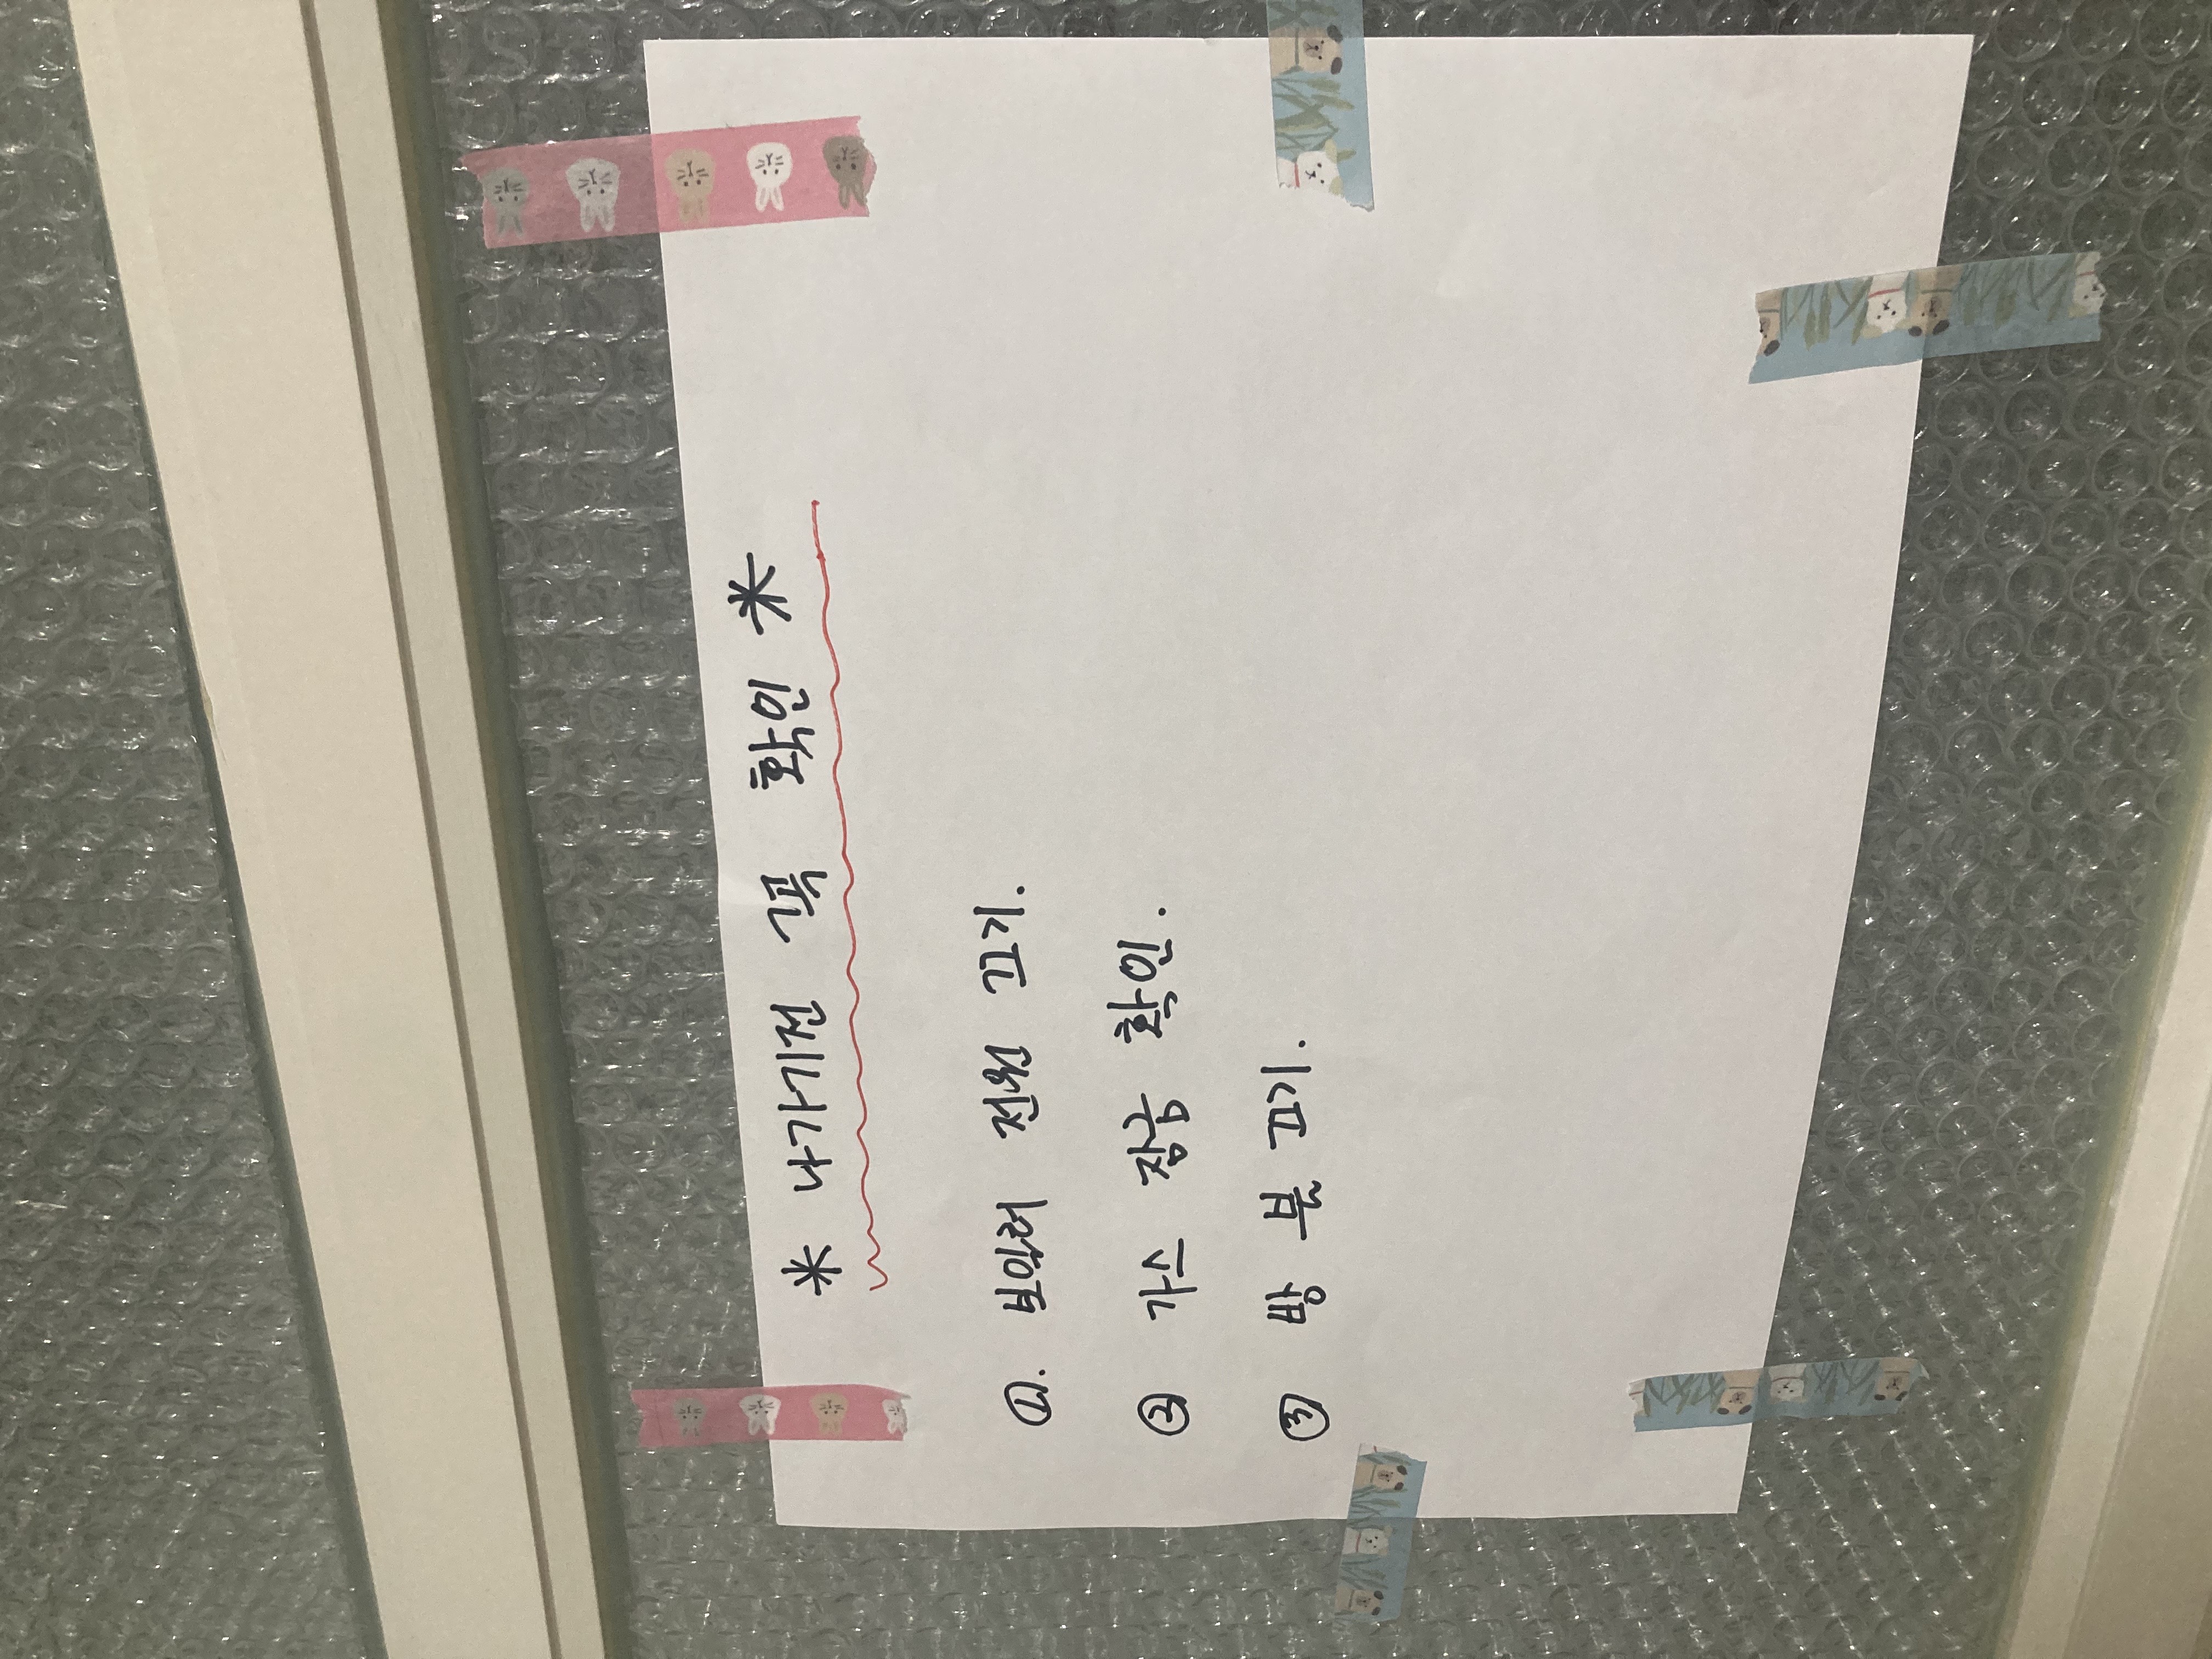 * 나가기전 꼭 확인 *
①. 보일러 전원 끄기.
② 가스 잠금 확인.
③ 방 불 끄기.